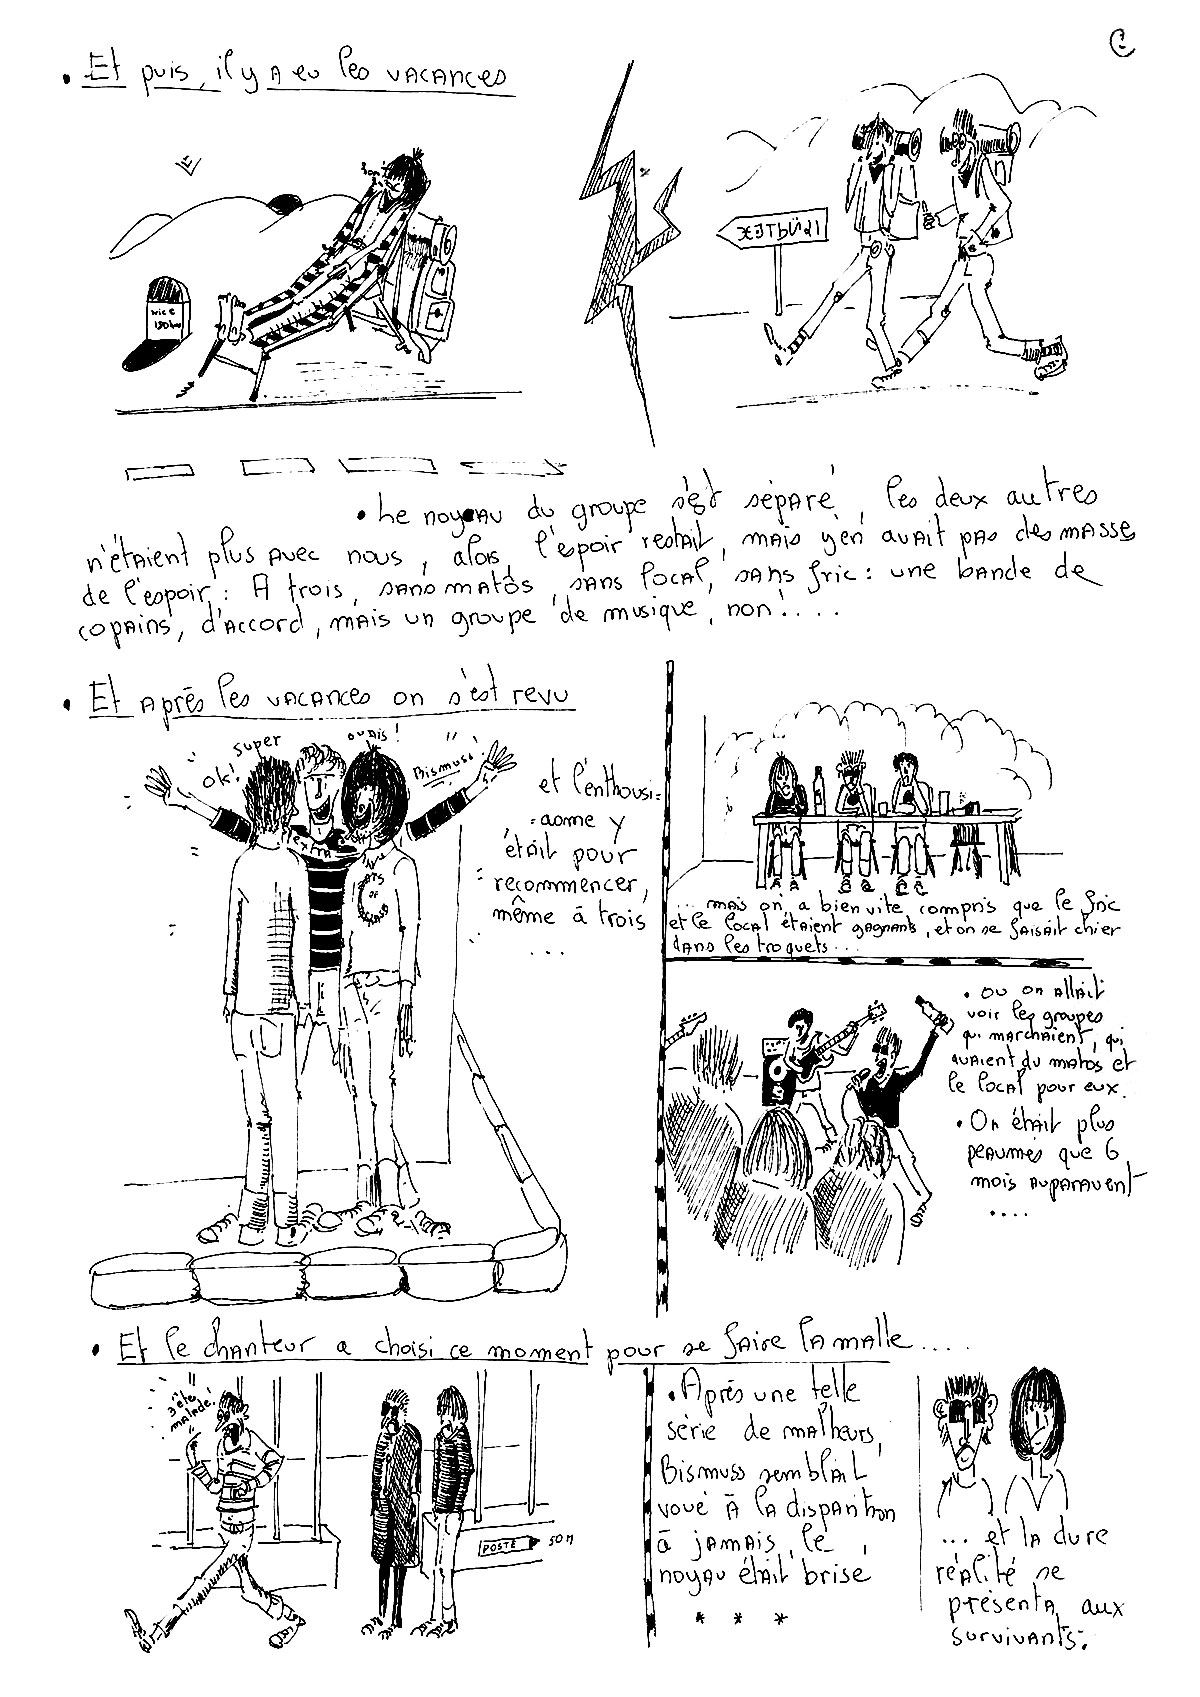 • Et puis, il y a eu les vacances
nice
150 km
• Le noyeau du groupe s'est séparé, les deux autres
n'étaient plus avec nous, alors, l'espoir restait, mais y'en avait pas des masse
de l'espoir : A trois, sans matos, sans local, sans fric : une bande de
copains, d'accord, mais un groupe de musique, non ! ....
• Et après les vacances on s'est revu
ok!
super
ouais !
Bismuss
extra
et l'enthousi=
=asme y
était pour
recommencer,
même à trois
...
... mais on a bien vite compris que le fric
et le local étaient gagnants, et on se faisait chier
dans les troquets ...
• ou on allait
voir les groupes
qui marchaient, qui
avaient du matos et
le local pour eux.
• On était plus
peaumés que 6
mois auparavent
....
• Et le chanteur a choisi ce moment pour se faire la malle ....
J'été
malade!
POSTE
50 m
• Après une telle
série de malheurs,
Bismuss semblait
voué à la disparition
à jamais, le
noyau était brisé
* * *
... et la dure
réalité se
présenta aux
survivants.